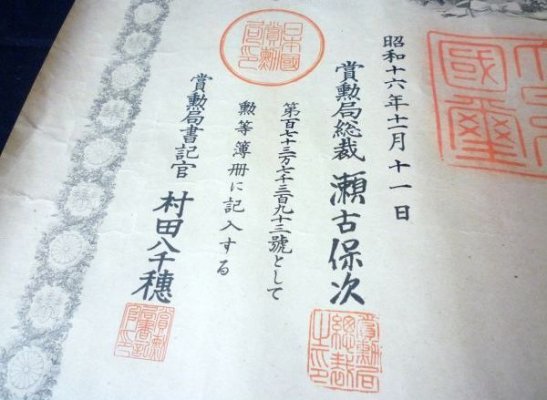 國璽
昭和十六年十一月十一日
賞勲局総裁 瀬古保次
賞勲局總裁之印
日本國賞勲局印
第百七十三万七千三百九十三號として
勲等簿冊に記入する
賞勲局書記官 村田八千穂